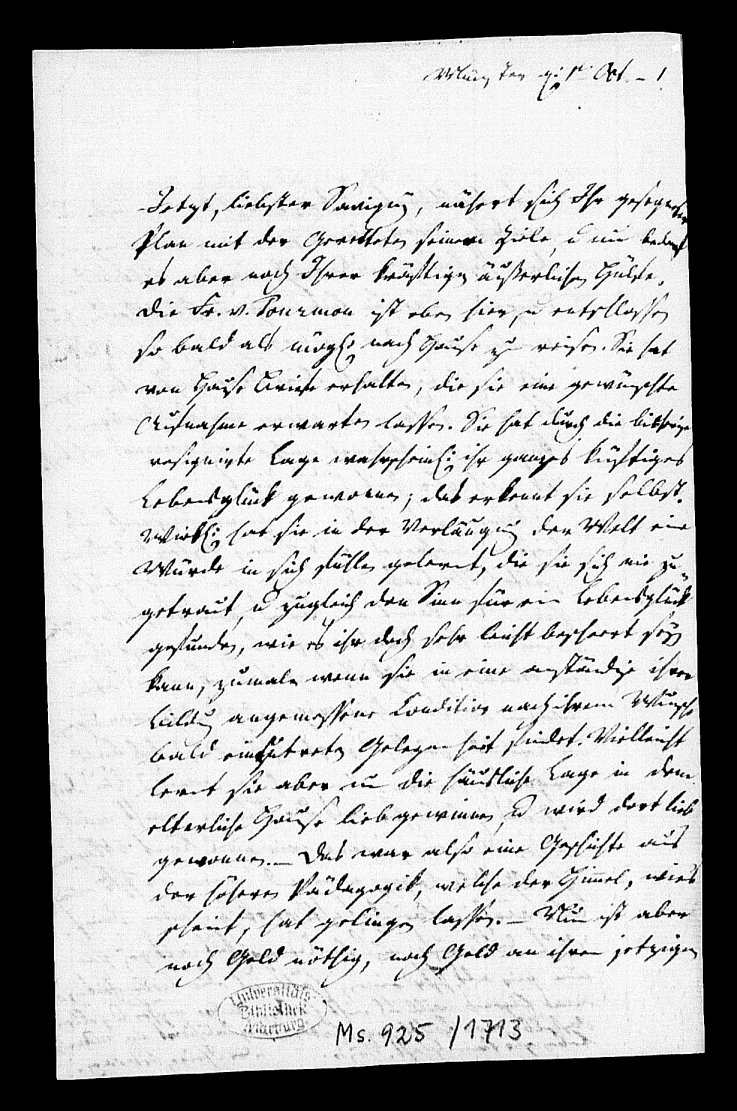 Münster d: 1n Oct. – 1
Jetzt, liebster Savigny, nähert sich Ihr gesegneter
Plan mit der Geretteten seinem Ziele, u nun bedarf
es aber noch Ihrer kräftigen äußerlichen Hülfe.
Die Fr. v. ist eben hier, u entschlossen
so bald als mögl: nach Hause zu reisen. Sie hat
von Hause Briefe erhalten, die sie eine gewünschte
Aufnahme erwarten lassen. Sie hat durch die bisherige
resignirte Lage wahrscheinl: ihr ganzes künftiges
Lebensglück gewonnen; das erkennt sie selbst.
Wirkl: hat sie in der Verläugnung der Welt eine
Würde in sich fühlen gelernt, die sie sich nie zu
getraut, u zugleich den Sinn für ein Lebensglück
gefunden, wie es ihr doch sehr leicht bescheert seyn
kann, zumalen wenn sie in eine anständige ihrer
Bildung angemessene Condition nach ihrem Wunsche
bald einzutreten Gelegenheit findet. Vielleicht
lernt sie aber nun die häusliche Lage in dem
elterlichen Hause liebgewinnen, u wird dort lieb
gewonnen. – Das war also eine Geschichte aus
der höheren Pädagogik, welche der Himmel, wie's
scheint, hat gelingen lassen. – Nun ist aber
noch Geld nöthig, noch Geld an ihren jetzigen
Universitäts-
Bibliothek
Marburg
Ms. 925 /1713